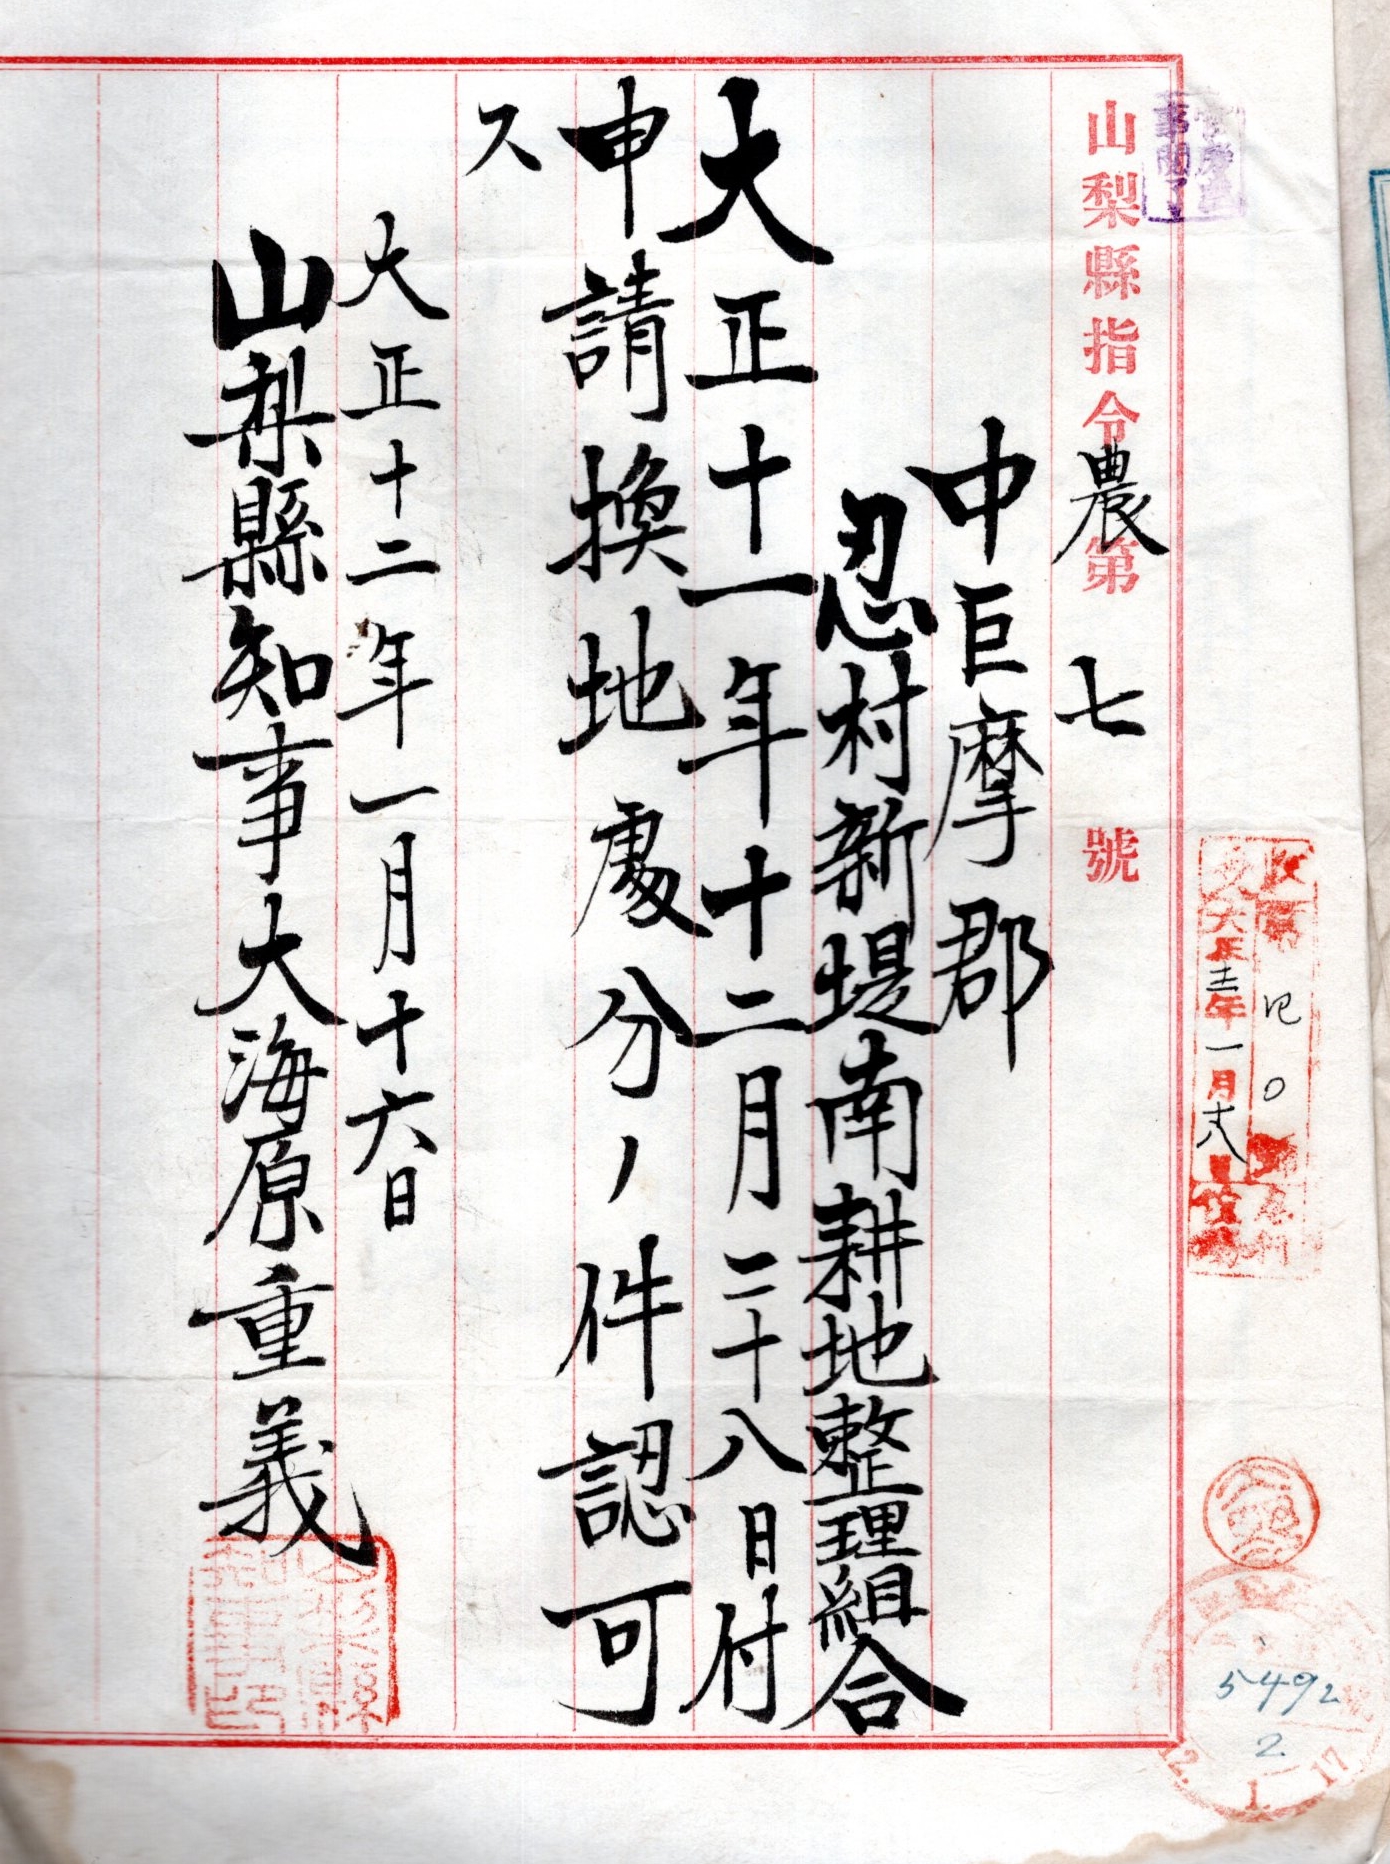 山梨縣指令農第七號
中巨摩郡
忍村新堤南耕地整理組合
大正十一年十二月二十八日付
申請換地處分ノ件認可
ス
大正十二年一月十六日
山梨縣知事大海原重義
山梨縣
知事印
大正十二年一月十八日
5492
2
12. 1. 17